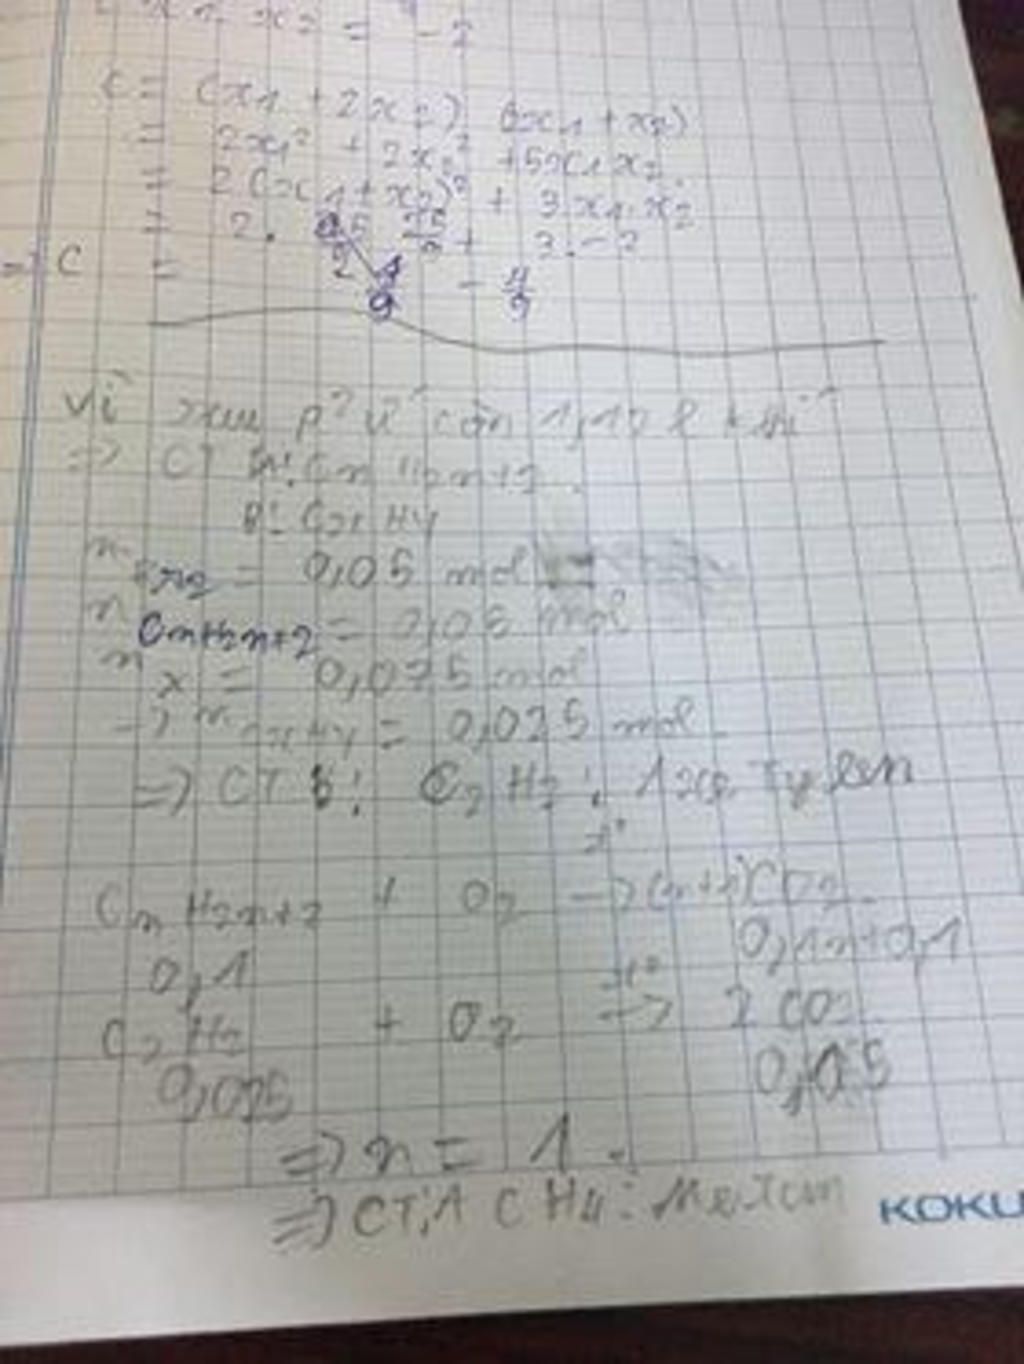 x2 = -2
C = (x1 + 2x2) (2x1 + x2)
= 2x1² + 2x2² + 5x1x2
= 2(x1+x2)² + 3.x1.x2
= 2. + 3.-2
=> C =
Vì sau pứ còn 1,12 l khí
=> CT A: CnH2n+2
B: CxHy
nBr2 = 0,05 mol
nCnH2n+2 = 0,05 mol
nX = 0,075 mol
=> nCxHy = 0,025 mol
=> CT B: C2H2: Axetylen
t°
CnH2n+2 + O2 -> CO2
0,1 0,1n+0,1
t°
C2H2 + O2 -> 2CO2
0,025 0,05
=> n = 1
=> CT A CH4: Metan
KOKU